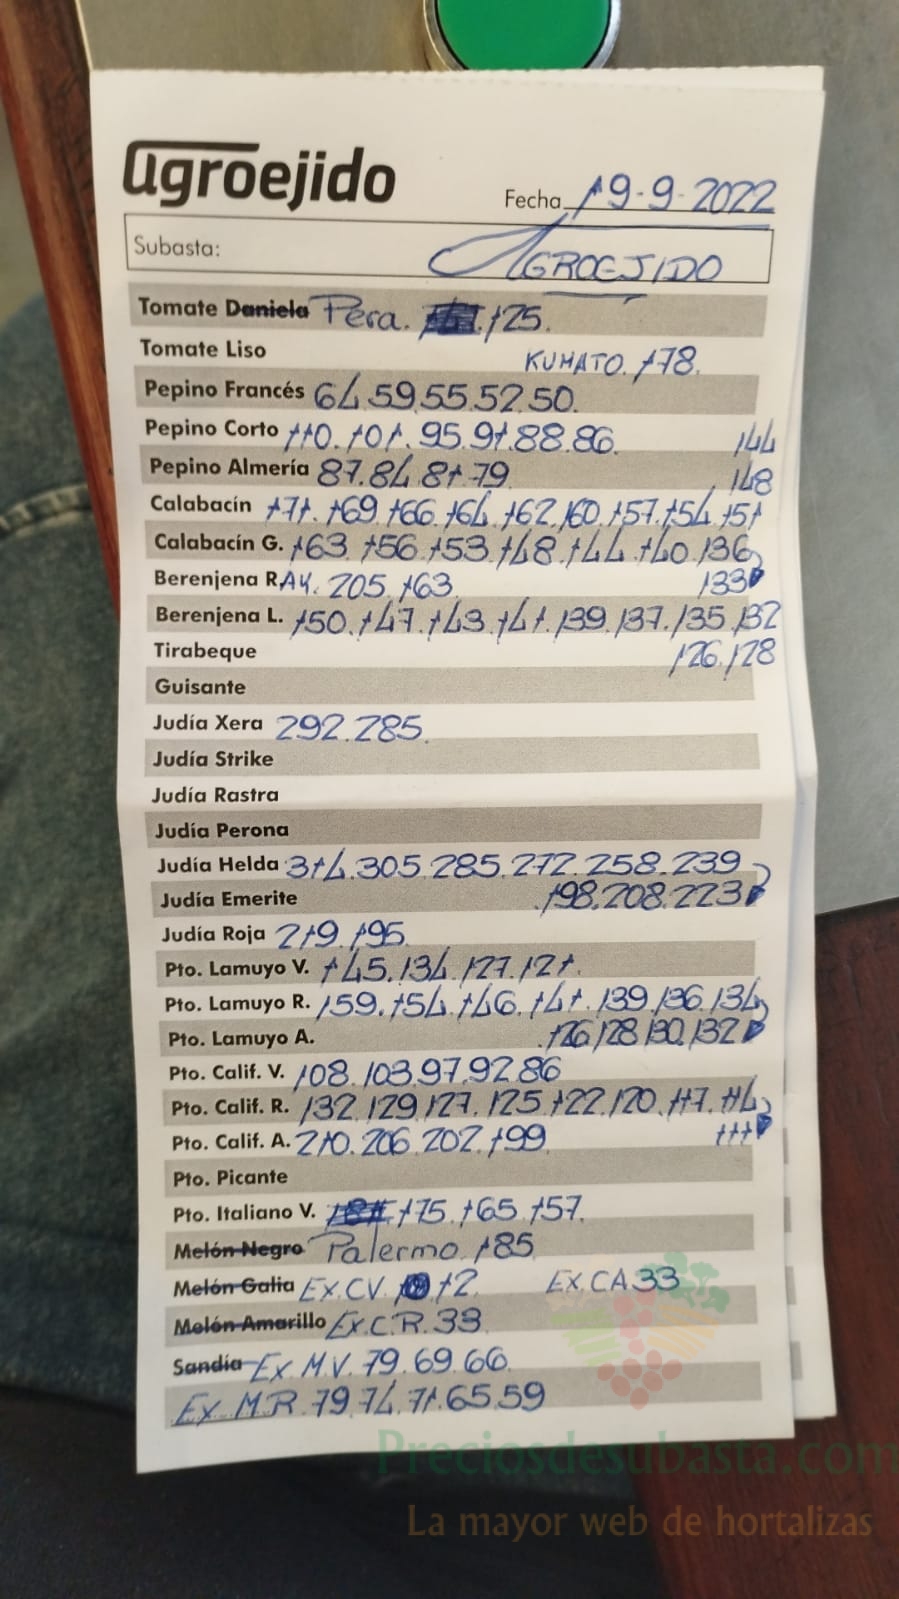 agroejido
Fecha 19-9-2022
Subasta: AGROEJIDO
Tomate Daniela Pera. 125.
Tomate Liso KUMATO. 178.
Pepino Francés 64.59.55.52.50.
Pepino Corto 110.101.95.91.88.86.
Pepino Almería 87.84.81.79
144
148
Calabacín 171.169.166.164.162.160.157.154.151
Calabacín G. 163.156.153.148.144.140.136
133
Berenjena RAY. 205.163.
Berenjena L. 150.147.143.141.139.137.135.132
126.128
Tirabeque
Guisante
Judía Xera 292.285.
Judía Strike
Judía Rastra
Judía Perona
Judía Helda 314.305.285.272.258.239
198.208.223
Judía Emerite
Judía Roja 219.195.
Pto. Lamuyo V. 145.134.127.121.
Pto. Lamuyo R. 159.154.146.141.139.136.134
126.128.130.132
Pto. Lamuyo A.
Pto. Calif. V. 108.103.97.92.86
Pto. Calif. R. 132.129.127.125.122.120.117.114
111
Pto. Calif. A. 210.206.202.199
Pto. Picante
Pto. Italiano V. 175.165.157.
Melón Negro Palermo. 185
Melón Galia Ex.CV. 12. Ex.CA.33
Melón Amarillo Ex.C.R.33
Sandía Ex.M.V. 79.69.66.
Ex.M.R. 79.74.71.65.59
Preciosdesubasta.com
La mayor web de hortalizas